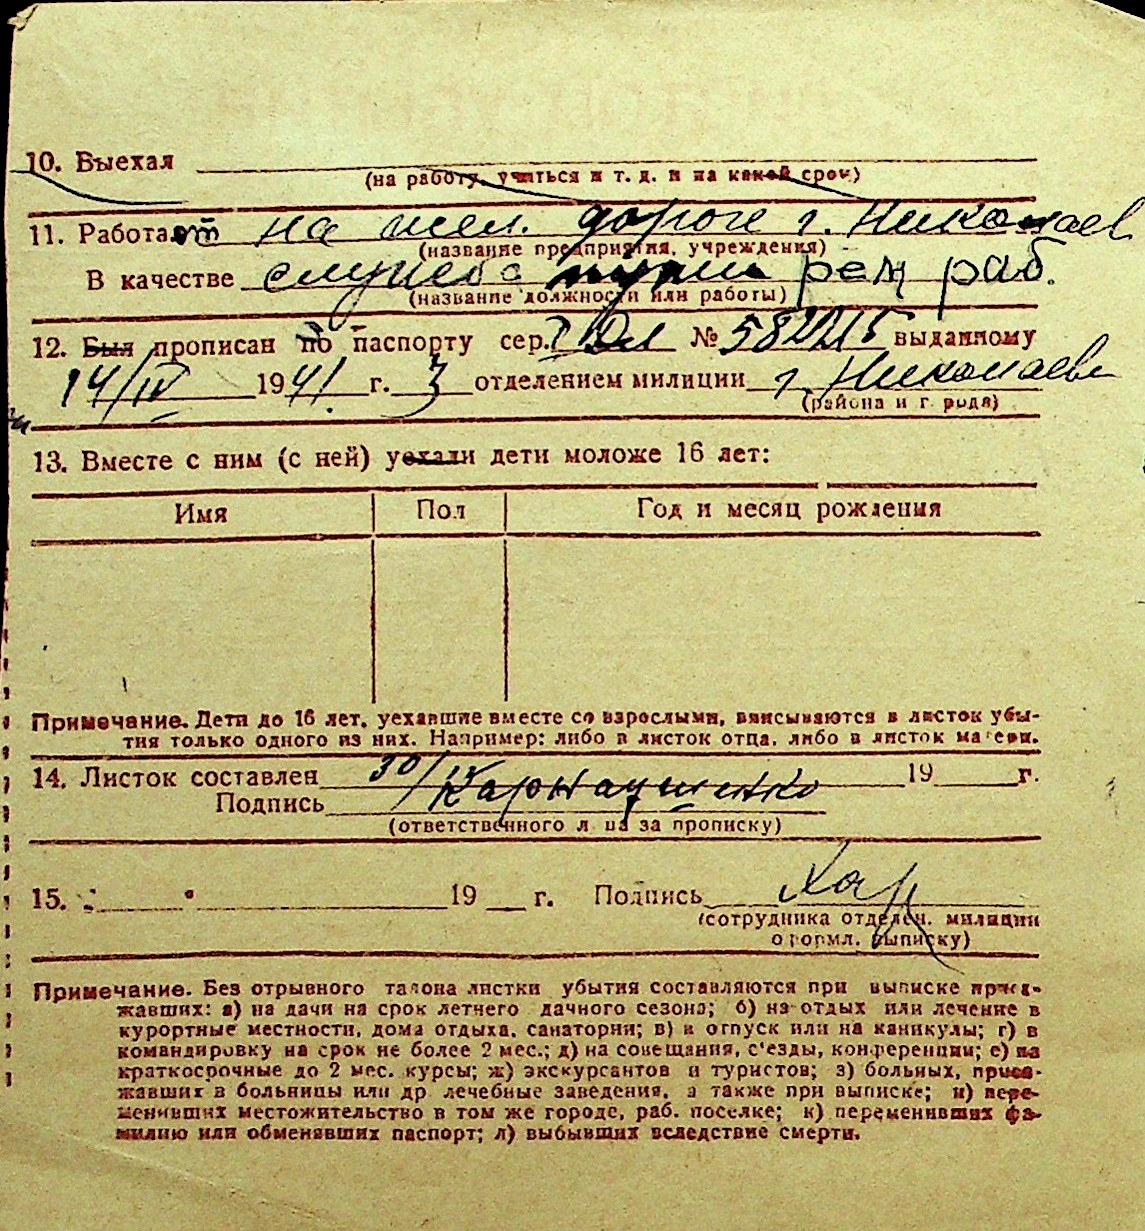 10. Выехал
(на работу, учиться и т. д. и на какой срок)
11. Работает на жел. дороге г. Николаев
(название предприятия, учреждения)
В качестве служеб раб.
(название должности или работы)
12. Был прописан по паспорту сер. № выданному
14/IV 1941 г. 3 отделением милиции г. Николаева
(района и города)
13. Вместе с ним (с ней) уехали дети моложе 16 лет:
Имя Пол Год и месяц рождения
Примечание. Дети до 16 лет, уехавшие вместе со взрослыми, вписываются в листок убы-
тия только одного из них. Например: либо в листок отца, либо в листок матери.
14. Листок составлен 30/IV 19 г.
Подпись Карнаушенко
(ответственного лица за прописку)
15. 19 г. Подпись
(сотрудника отделен. милиции
оформл. выписку)
Примечание. Без отрывного талона листки убытия составляются при выписке приез-
жавших: а) на дачи на срок летнего дачного сезона; б) на отдых или лечение в
курортные местности, дома отдыха, санатории; в) в отпуск или на каникулы; г) в
командировку на срок не более 2 мес.; д) на совещания, с'езды, конференции; е) на
краткосрочные до 2 мес. курсы; ж) экскурсантов и туристов; з) больных, приез-
жавших в больницы или др лечебные заведения, а также при выписке; и) пере-
менивших местожительство в том же городе, раб. поселке; к) переменивших фа-
милию или обменявших паспорт; л) выбывших вследствие смерти.